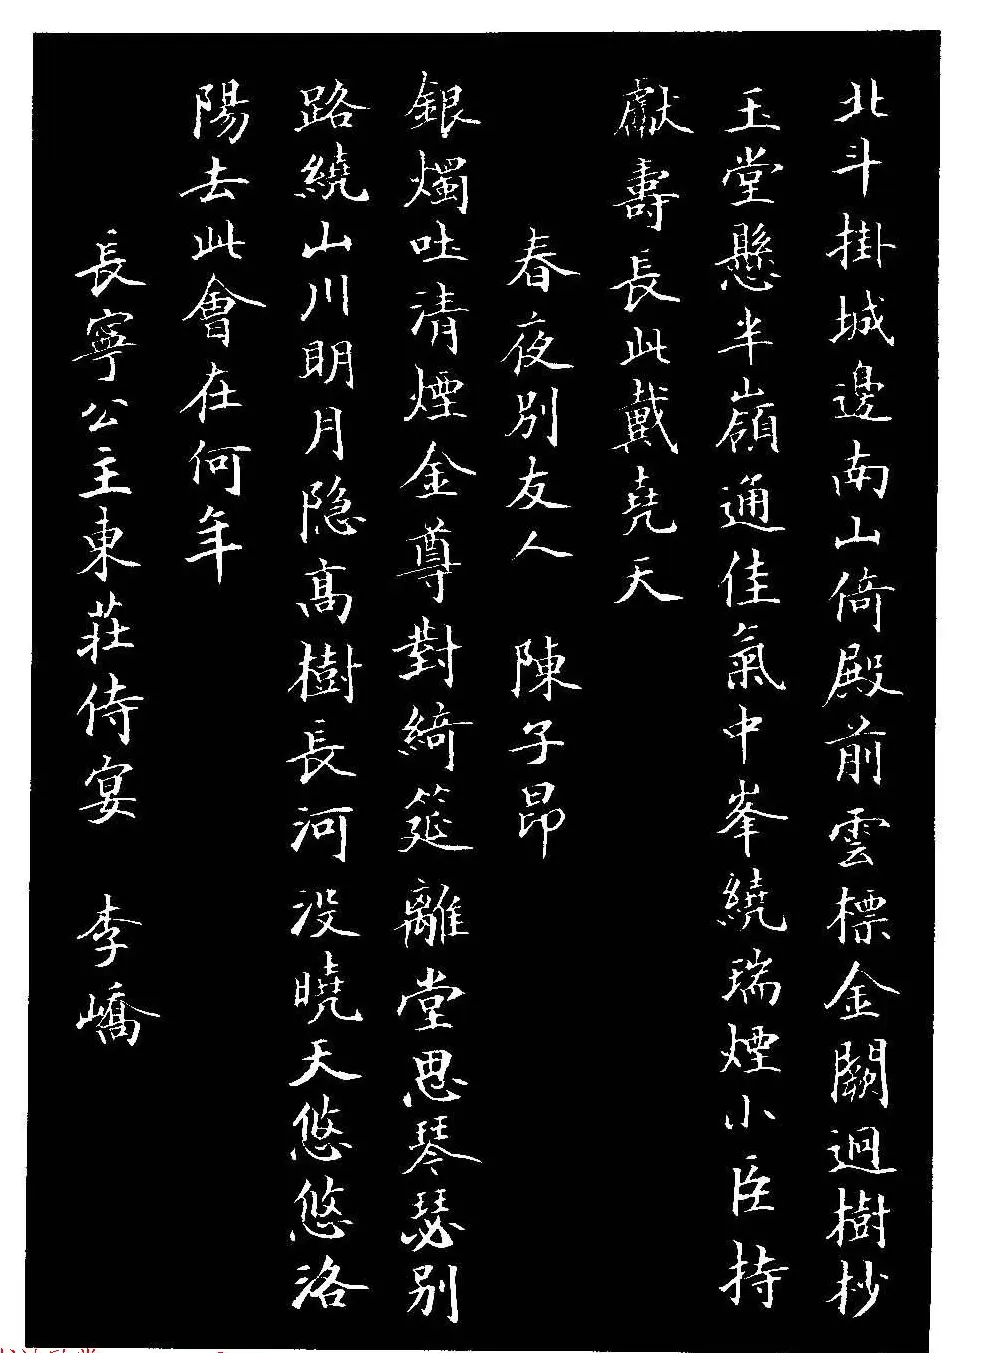 北斗掛城邊南山倚殿前雲標金闕迥樹杪
玉堂懸半嶺通佳氣中峯繞瑞煙小臣持
獻壽長此戴堯天
春夜別友人 陳子昂
銀燭吐清煙金尊對綺筵離堂思琴瑟别
路繞山川明月隐高樹長河没曉天悠悠洛
陽去此會在何年
長寧公主東莊侍宴 李嶠